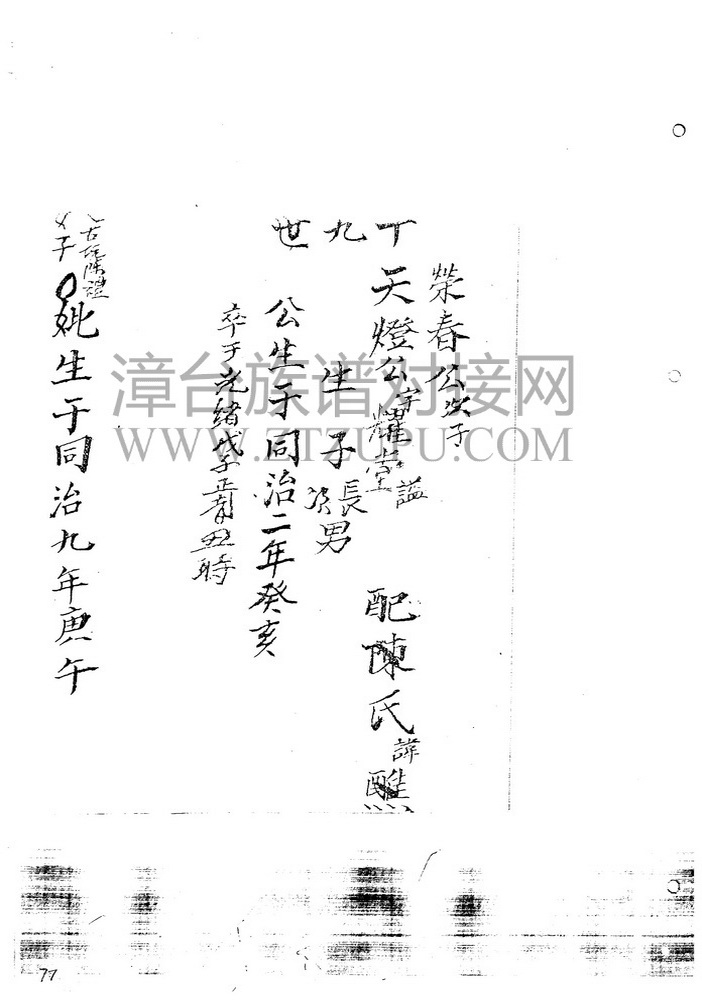 榮春公次子
十九世
天燈公字耀堂謚
配陳氏諱醮
生子長男
次
公生于同治二年癸亥
卒于光緒戊子正月丑時
妣生于同治九年庚午
漳台族谱对接网
WWW.ZTZUPU.COM
77